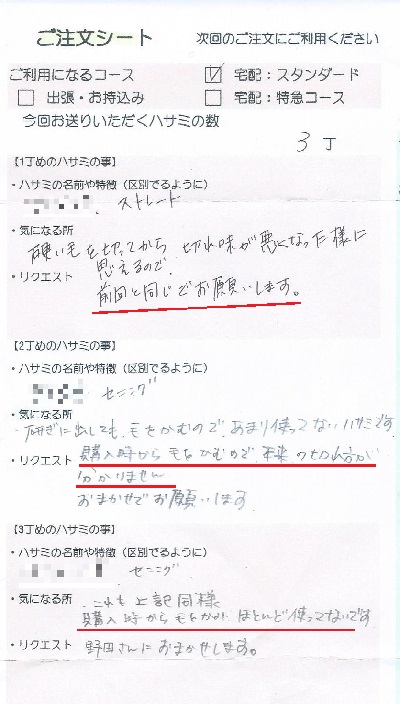 ご注文シート 次回のご注文にご利用ください
ご利用になるコース ☑ 宅配：スタンダード
□ 出張・お持込み □ 宅配：特急コース
今回お送りいただくハサミの数
3 丁
【1丁めのハサミの事】
・ハサミの名前や特徴（区別でるように）
ストレート
・気になる所
硬い毛を切ってから 切れ味が悪くなった様に
思えるので、
・リクエスト
前回と同じでお願いします。
【2丁めのハサミの事】
・ハサミの名前や特徴（区別でるように）
セニング
・気になる所
研ぎに出しても、毛をかむので、あまり使ってないハサミです
・リクエスト 購入時から毛をかむので、本来の切れ方が
分かりません
おまかせでお願いします
【3丁めのハサミの事】
・ハサミの名前や特徴（区別でるように）
セニング
・気になる所 これも上記同様
購入時から毛をかみ ほとんど使ってないです
・リクエスト 野田さんにおまかせします。